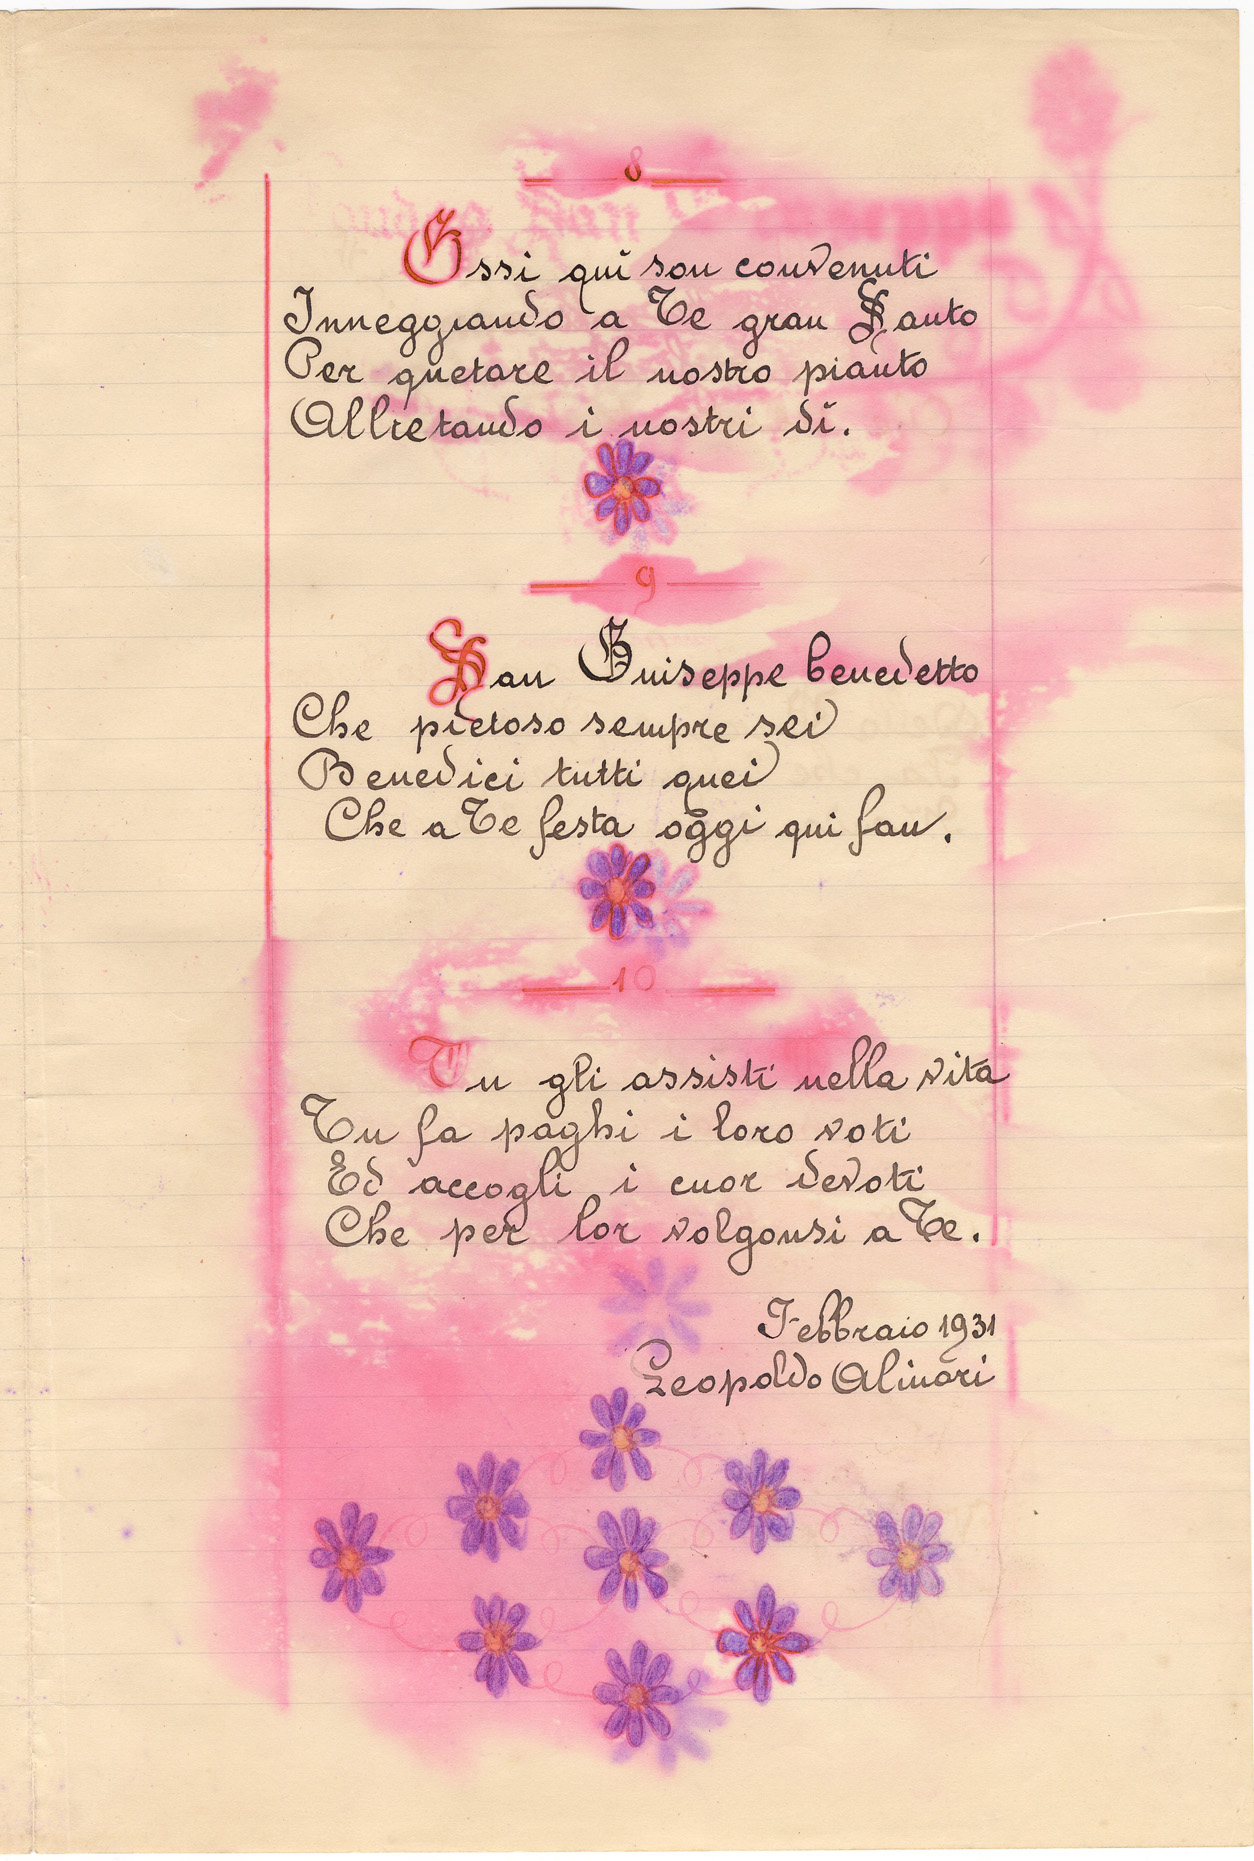 8
Essi qui son convenuti
Inneggiando a Te gran Santo
Per quetare il nostro pianto
Allietando i nostri dì.
9
San Giuseppe benedetto
Che pietoso sempre sei
Benedici tutti quei
Che a Te festa oggi qui fan.
10
Tu gli assisti nella vita
Tu fa paghi i loro voti
Ed accogli i cuor devoti
Che per lor volgonsi a Te.
Febbraio 1931
Leopoldo Alinari